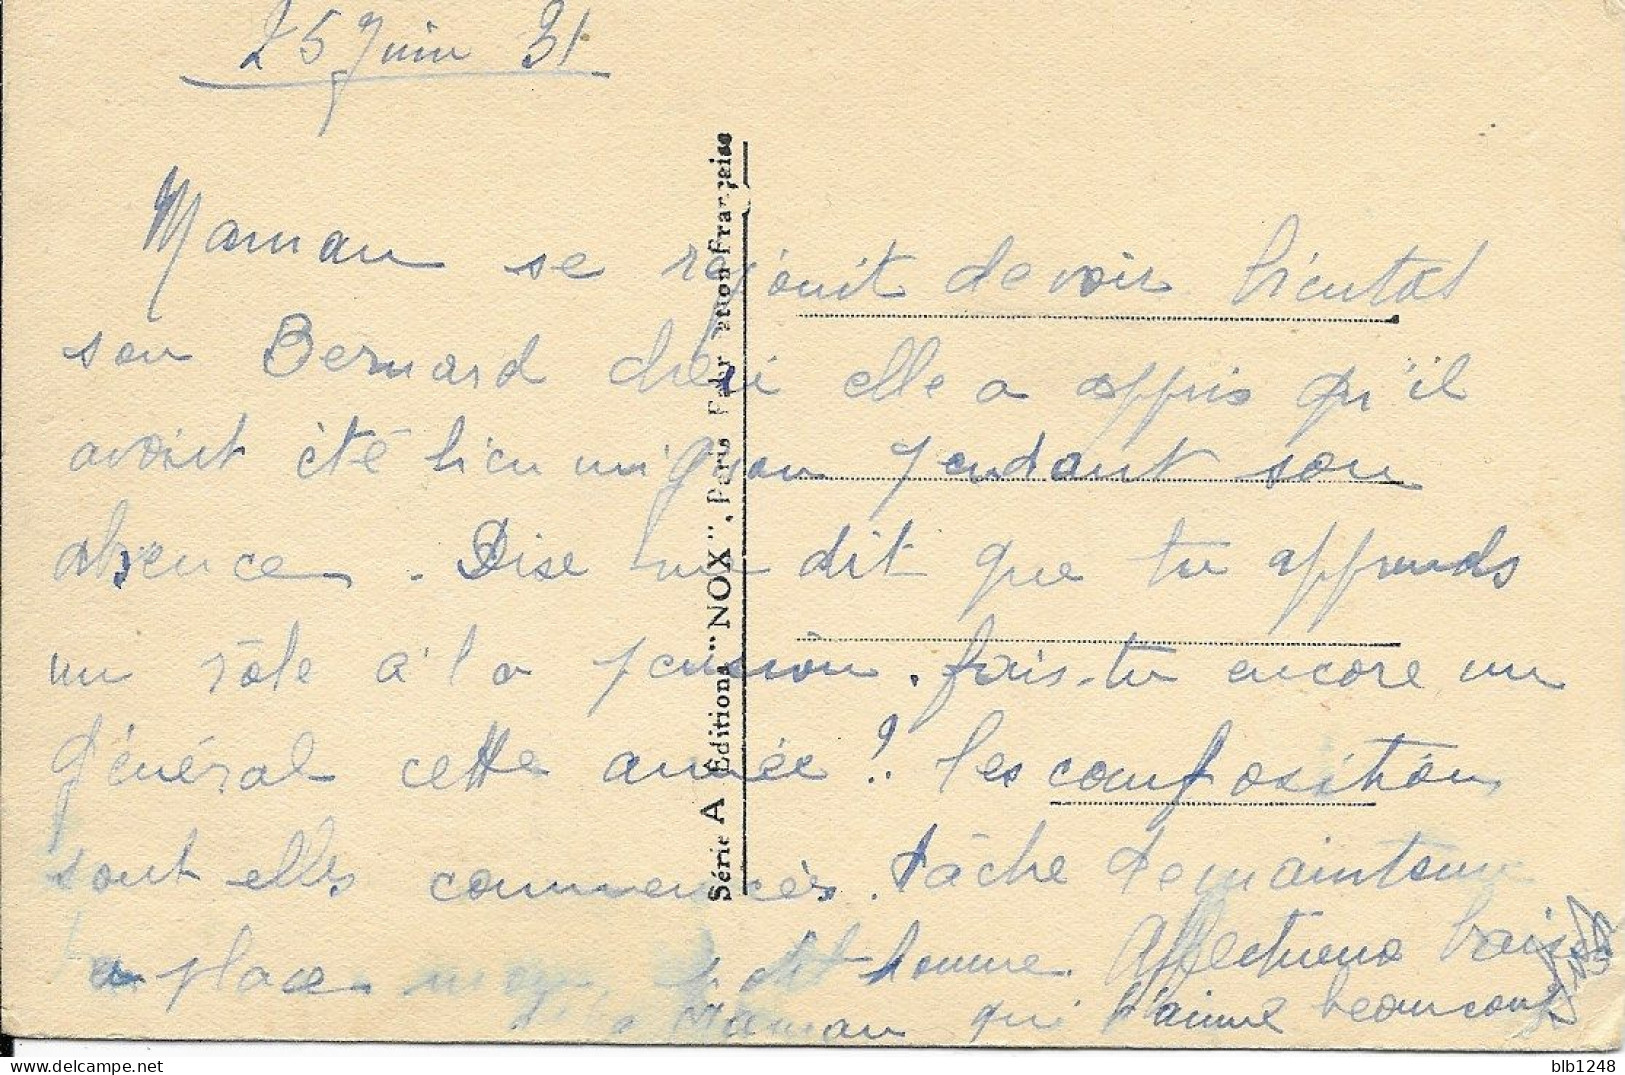 25 Juin 31
Maman se réjouit de voir bientot
son Bernard chéri elle a appris qu'il
avait été bien mignon pendant son
absence. Dise me dit que tu apprends
un rôle à la pension. fais-tu encore un
général cette année ?. les composition
sont elles commencés. tâche de maintenir
ta place mon petit homme. Affectueux baisers
de ta Maman qui t'aime beaucoup
Série A Éditions "NOX", Paris Fabrication Française
blb1248